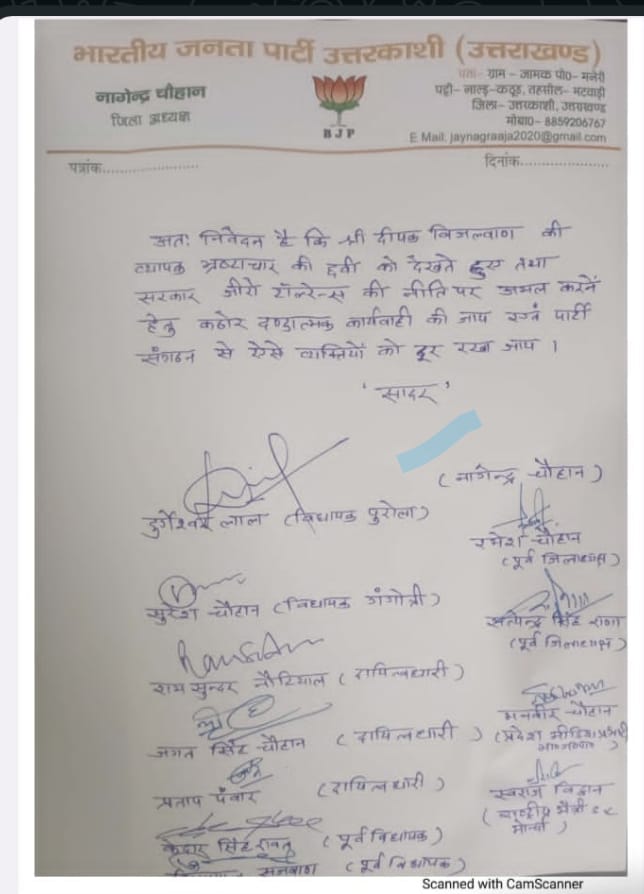 भारतीय जनता पार्टी उत्तरकाशी (उत्तराखण्ड)
नागेन्द्र चौहान
जिला अध्यक्ष
BJP
पता- ग्राम - जामक पो०- मनेरी
पट्टी- नाल्ड-कठूड़, तहसील- भटवाड़ी
जिला- उत्तरकाशी, उत्तराखण्ड
मोबा०- 8859206767
E Mail: jaynagraaja2020@gmail.com
पत्रांक.....................
दिनांक.....................
अतः निवेदन है कि श्री दीपक बिजल्वाण की
व्यापक भ्रष्टाचार की छवी को देखते हुए तथा
सरकार जीरो टॉलरेन्स की नीति पर अमल करने
हेतु कठोर दण्डात्मक कार्यवाही की जाय एवं पार्टी
संगठन से ऐसे व्यक्तियों को दूर रखा जाय ।
'सादर'
(नागेन्द्र चौहान)
दुर्गेश्वर लाल (विधायक पुरोला)
रमेश चौहान
(पूर्व जिलाध्यक्ष)
सुरेश चौहान (विधायक गंगोत्री)
सत्येन्द्र सिंह राणा
(पूर्व जिलाध्यक्ष)
राम सुन्दर नौटियाल (दायित्वधारी)
मनवीर चौहान
(प्रदेश मीडिया प्रभारी
भाजपा)
जगत सिंह चौहान (दायित्वधारी)
प्रताप पंवार (दायित्वधारी)
स्वराज विद्वान
(राष्ट्रीय मंत्री sc
मोर्चा)
केदार सिंह रावत (पूर्व विधायक)
सजवाण (पूर्व विधायक)
Scanned with CamScanner